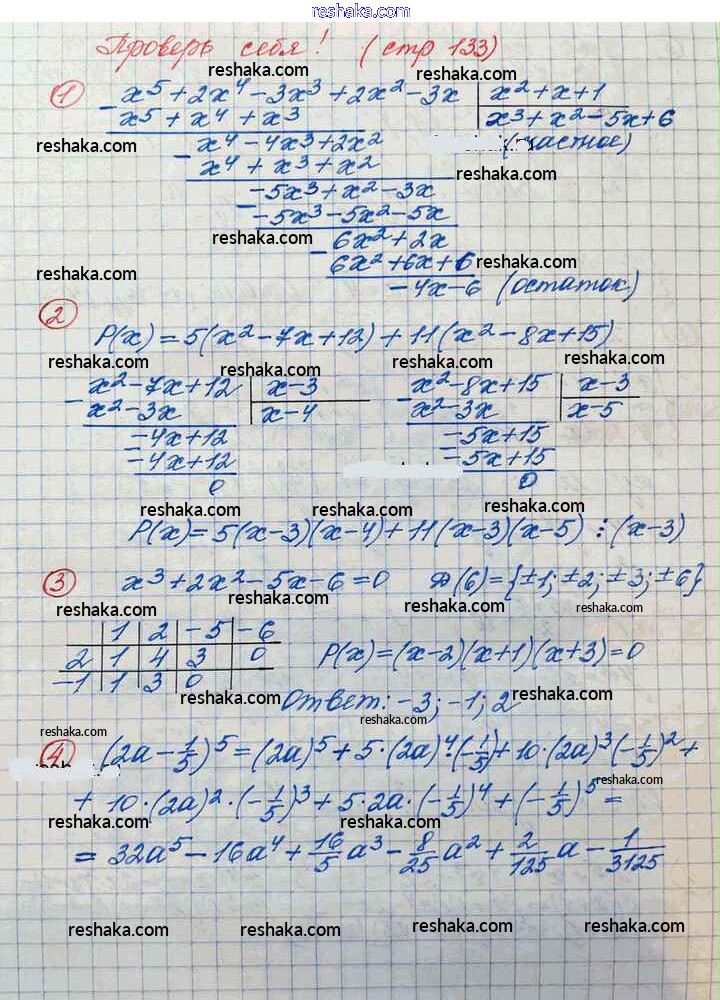 reshaka.com
Проверь себя! (стр 133)
reshaka.com reshaka.com
1 x⁵ + 2x⁴ - 3x³ + 2x² - 3x | x² + x + 1
- x⁵ + x⁴ + x³ | x³ + x² - 5x + 6
reshaka.com x⁴ - 4x³ + 2x² (частное)
- x⁴ + x³ + x² reshaka.com
-5x³ + x² - 3x
- -5x³ - 5x² - 5x
reshaka.com - 6x² + 2x
6x² + 6x + 6 reshaka.com
reshaka.com -4x - 6 (остаток)
2
P(x) = 5(x² - 7x + 12) + 11(x² - 8x + 15)
reshaka.com reshaka.com reshaka.com
- x² - 7x + 12 | x - 3 - x² - 8x + 15 | x - 3
x² - 3x | x - 4 x² - 3x | x - 5
- -4x + 12 - -5x + 15
-4x + 12 -5x + 15
reshaka.com 0 0
reshaka.com reshaka.com reshaka.com
P(x) = 5(x-3)(x-4) + 11(x-3)(x-5) ⋮ (x-3)
3 x³ + 2x² - 5x - 6 = 0 D(6) = {±1; ±2; ±3; ±6}
reshaka.com reshaka.com reshaka.com
1 2 -5 -6
2 1 4 3 0 P(x) = (x-2)(x+1)(x+3) = 0
-1 1 3 0 reshaka.com
Ответ: -3; -1; 2 reshaka.com
reshaka.com reshaka.com
4 (2a - 1/5)⁵ = (2a)⁵ + 5·(2a)⁴·(-1/5) + 10·(2a)³(-1/5)² +
reshaka.com
+ 10·(2a)²·(-1/5)³ + 5·2a·(-1/5)⁴ + (-1/5)⁵ =
reshaka.com reshaka.com reshaka.com
= 32a⁵ - 16a⁴ + 16/5 a³ - 8/25 a² + 2/125 a - 1/3125
reshaka.com reshaka.com reshaka.com reshaka.com